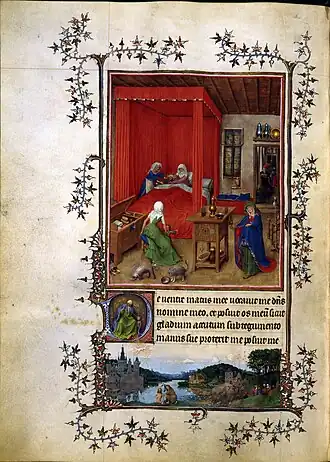 De ventre matris mee vocavit me dns
nomine meo, et posuit os meu sicut
gladium acutum sub tegumento
manus sue protexit me posuit me